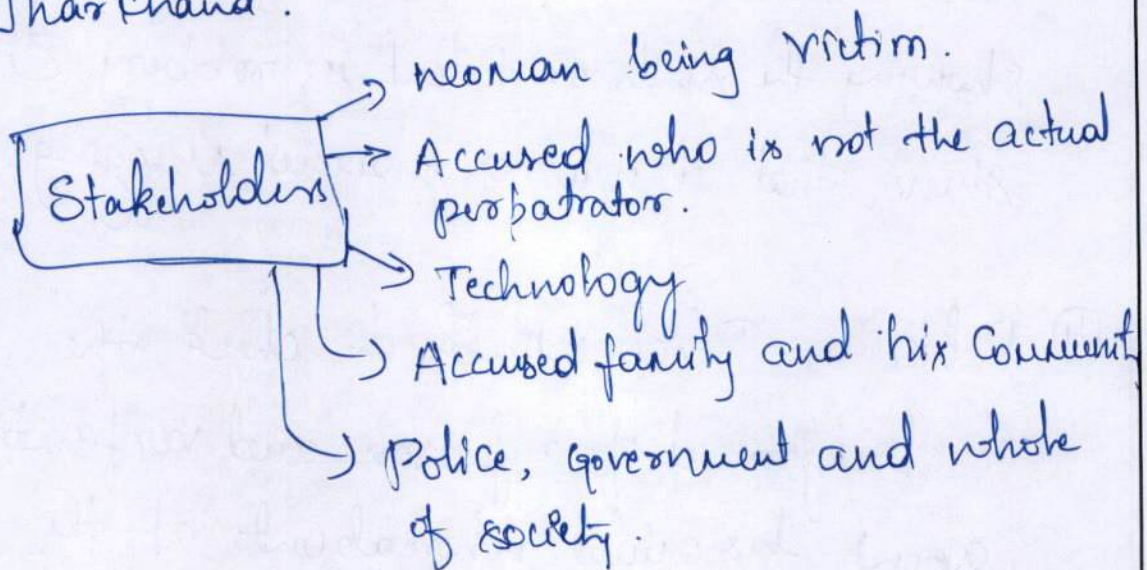 Jharkhand.
woman being victim.
Stakeholders
Accused who is not the actual
perpatrator.
Technology
Accused family and his Communit
Police, Government and whole
of society.